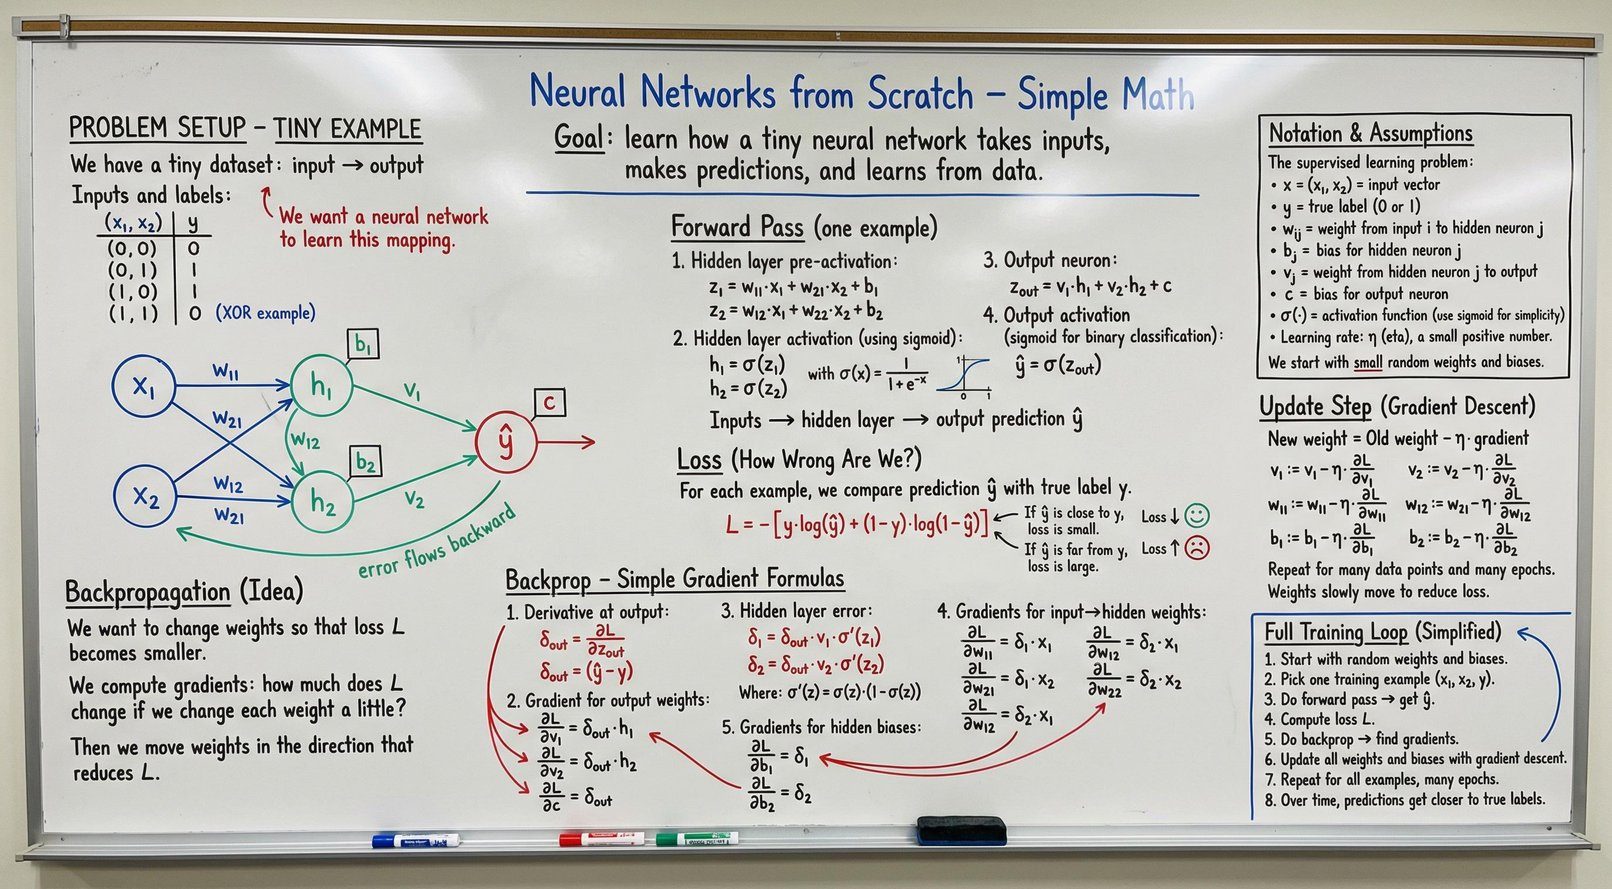 Neural Networks from Scratch – Simple Math
Goal: learn how a tiny neural network takes inputs,
makes predictions, and learns from data.
PROBLEM SETUP – TINY EXAMPLE
We have a tiny dataset: input → output
Inputs and labels:
We want a neural network
to learn this mapping.
(x₁, x₂) | y
(0, 0) | 0
(0, 1) | 1
(1, 0) | 1
(1, 1) | 0 (XOR example)
x₁
w₁₁
h₁
b₁
v₁
w₂₁
w₁₂
ŷ
c
x₂
w₁₂
w₂₁
h₂
b₂
v₂
error flows backward
Backpropagation (Idea)
We want to change weights so that loss L
becomes smaller.
We compute gradients: how much does L
change if we change each weight a little?
Then we move weights in the direction that
reduces L.
Forward Pass (one example)
1. Hidden layer pre-activation:
z₁ = w₁₁·x₁ + w₂₁·x₂ + b₁
z₂ = w₁₂·x₁ + w₂₂·x₂ + b₂
2. Hidden layer activation (using sigmoid):
h₁ = σ(z₁)
h₂ = σ(z₂)
with σ(x) = 1 / (1 + e⁻ˣ)
1
0 1
3. Output neuron:
z_out = v₁·h₁ + v₂·h₂ + c
4. Output activation
(sigmoid for binary classification):
ŷ = σ(z_out)
Inputs → hidden layer → output prediction ŷ
Loss (How Wrong Are We?)
For each example, we compare prediction ŷ with true label y.
L = −[y·log(ŷ) + (1−y)·log(1−ŷ)]
If ŷ is close to y,
loss is small.
Loss ↓
If ŷ is far from y,
loss is large.
Loss ↑
Backprop – Simple Gradient Formulas
1. Derivative at output:
δ_out = ∂L/∂z_out
δ_out = (ŷ − y)
2. Gradient for output weights:
∂L/∂v₁ = δ_out·h₁
∂L/∂v₂ = δ_out·h₂
∂L/∂c = δ_out
3. Hidden layer error:
δ₁ = δ_out·v₁·σ'(z₁)
δ₂ = δ_out·v₂·σ'(z₂)
Where: σ'(z) = σ(z)·(1−σ(z))
5. Gradients for hidden biases:
∂L/∂b₁ = δ₁
∂L/∂b₂ = δ₂
4. Gradients for input→hidden weights:
∂L/∂w₁₁ = δ₁·x₁ ∂L/∂w₁₂ = δ₂·x₁
∂L/∂w₂₁ = δ₁·x₂ ∂L/∂w₂₂ = δ₂·x₂
∂L/∂w₁₂ = δ₂·x₁
Notation & Assumptions
The supervised learning problem:
• x = (x₁, x₂) = input vector
• y = true label (0 or 1)
• wᵢⱼ = weight from input i to hidden neuron j
• bⱼ = bias for hidden neuron j
• vⱼ = weight from hidden neuron j to output
• c = bias for output neuron
• σ(·) = activation function (use sigmoid for simplicity)
• Learning rate: η (eta), a small positive number.
We start with small random weights and biases.
Update Step (Gradient Descent)
New weight = Old weight − η·gradient
v₁ := v₁ − η·∂L/∂v₁ v₂ := v₂ − η·∂L/∂v₂
w₁₁ := w₁₁ − η·∂L/∂w₁₁ w₁₂ := w₂₁ − η·∂L/∂w₁₂
b₁ := b₁ − η·∂L/∂b₁ b₂ := b₂ − η·∂L/∂b₂
Repeat for many data points and many epochs.
Weights slowly move to reduce loss.
Full Training Loop (Simplified)
1. Start with random weights and biases.
2. Pick one training example (x₁, x₂, y).
3. Do forward pass → get ŷ.
4. Compute loss L.
5. Do backprop → find gradients.
6. Update all weights and biases with gradient descent.
7. Repeat for all examples, many epochs.
8. Over time, predictions get closer to true labels.